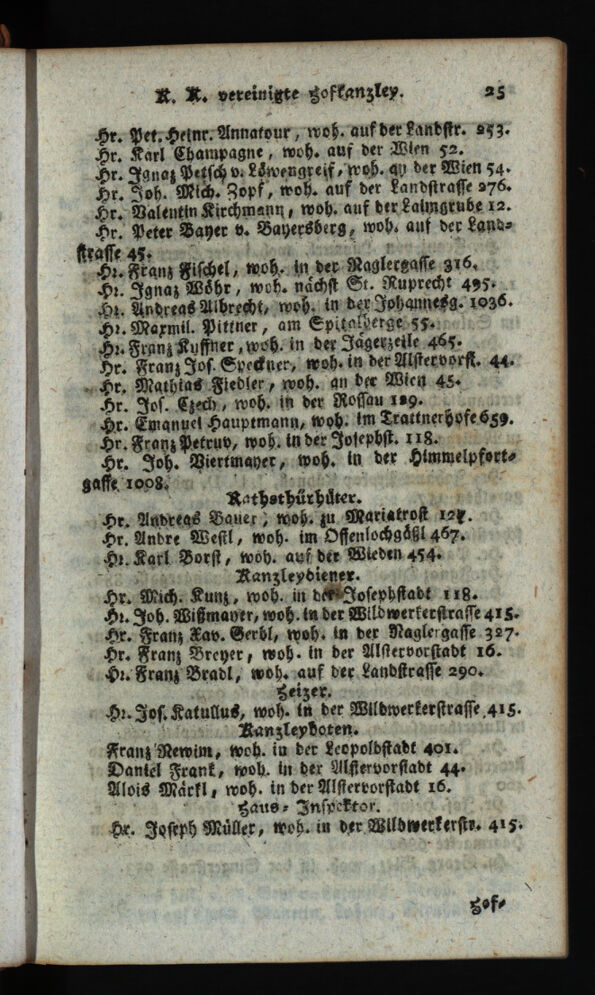 K. K. vereinigte Hofkanzley. 25
Hr. Pet. Heinr. Annatour, woh. auf der Landstr. 253.
Hr. Karl Champagne, woh. auf der Wien 52.
Hr. Ignaz Petsch v. Löwengreif, woh. an der Wien 54.
Hr. Joh. Mich. Zopf, woh. auf der Landstrasse 276.
Hr. Valentin Kirchmann, woh. auf der Laimgrube 12.
Hr. Peter Bayer v. Bayersberg, woh. auf der Land-
strasse 45.
Hr. Franz Fischel, woh. in der Naglergasse 316.
Hr. Ignaz Wöhr, woh. nächst St. Ruprecht 495.
Hr. Andreas Albrecht, woh. in der Johannesg. 1036.
Hr. Maxmil. Pittner, am Spitalberge 55.
Hr. Franz Kuffner, woh. in der Jägerzeile 465.
Hr. Franz Jos. Speckner, woh. in der Alstervorst. 44.
Hr. Mathias Fiedler, woh. an der Wien 45.
Hr. Jos. Czech, woh. in der Rossau 129.
Hr. Emanuel Hauptmann, woh. im Trattnerhofe 659.
Hr. Franz Petruv, woh. in der Josephst. 118.
Hr. Joh. Viertmayer, woh. in der Himmelpfort-
gasse 1008.
Rathsthürhüter.
Hr. Andreas Bauer, woh. zu Mariatrost 127.
Hr. Andre Westl, woh. im Offenlochgäßl 467.
Hr. Karl Borst, woh. auf der Wieden 454.
Kanzleydiener.
Hr. Mich. Kunz, woh. in der Josephstadt 118.
Hr. Joh. Wißmayer, woh. in der Wildwerkerstrasse 415.
Hr. Franz Xav. Gerbl, woh. in der Naglergasse 327.
Hr. Franz Breyer, woh. in der Alstervorstadt 16.
Hr. Franz Bradl, woh. auf der Landstrasse 290.
Heizer.
Hr. Jos. Katullus, woh. in der Wildwerkerstrasse 415.
Kanzleyboten.
Franz Newim, woh. in der Leopoldstadt 401.
Daniel Frank, woh. in der Alstervorstadt 44.
Alois Märkl, woh. in der Alstervorstadt 16.
Haus-Inspektor.
Hr. Joseph Müller, woh. in der Wildwerkerstr. 415.
Hof-